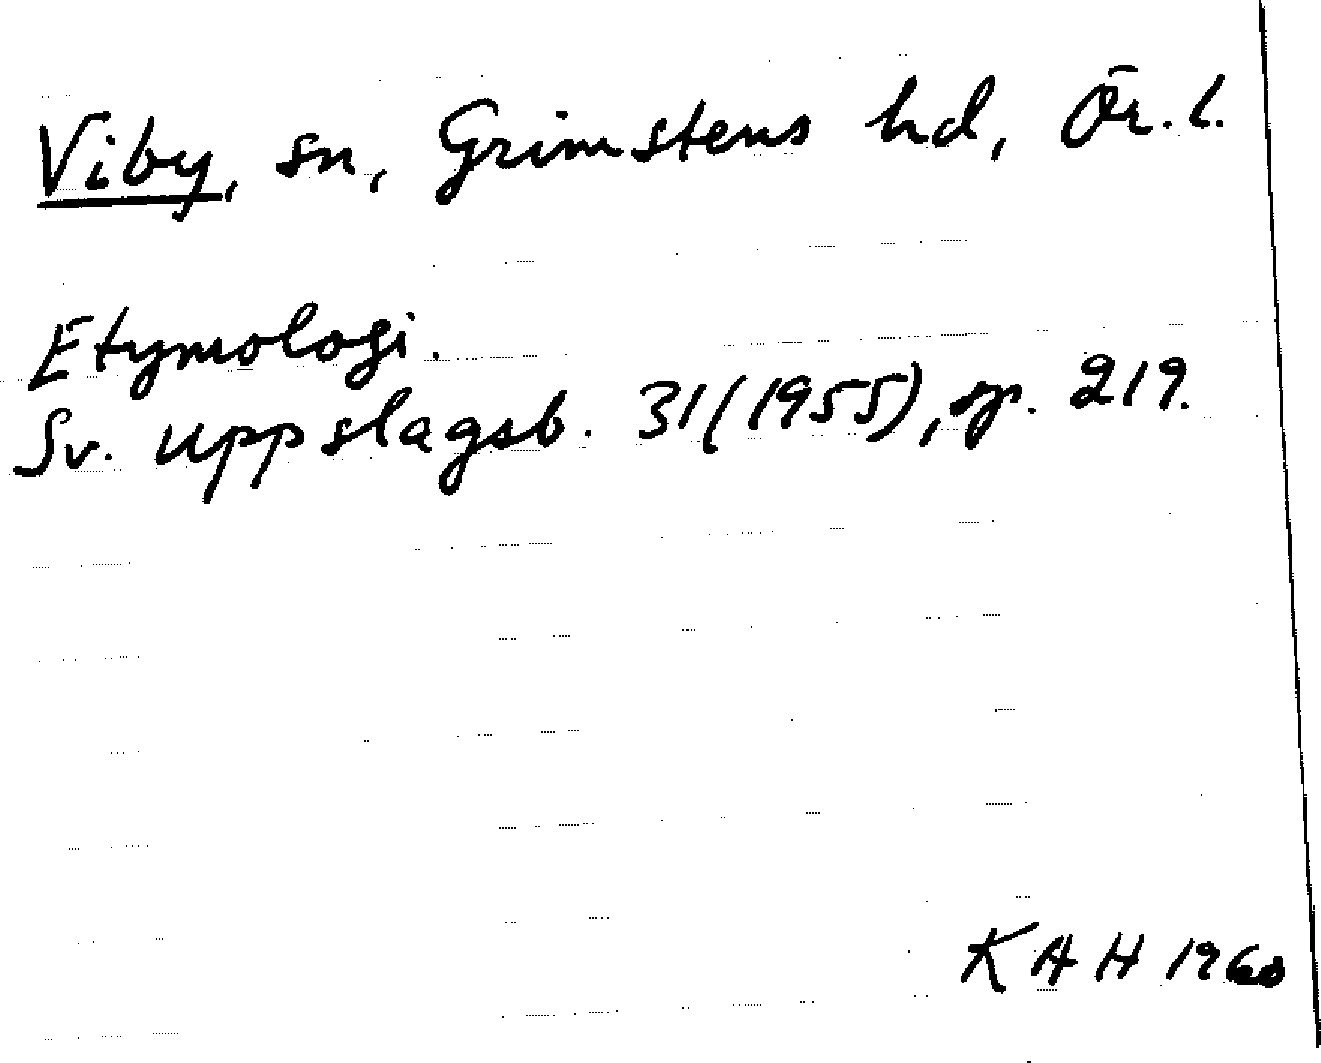 Viby, sn, Grimstens hd, Ör. l.
Etymologi.
Sv. uppslagsb. 31 (1955), sp. 219.
KAH 1960